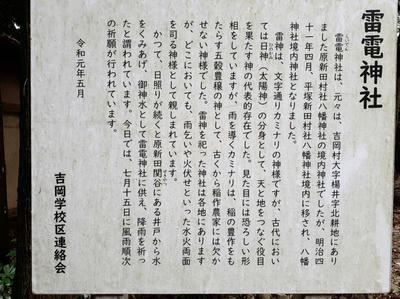 雷電神社
らいでん
雷電神社は、元々は、吉岡村大字楊井字北耕地にあり
ました原新田村社八幡神社の境内神社でしたが、明治四
十一年四月、平塚新田村社八幡神社境内に移され、八幡
神社境内神社となりました。
雷神は、文字通りカミナリの神様ですが、古代におい
ては日神（太陽神）の分身として、天と地をつなぐ役目
を果たす神の代表的存在でした。見た目には恐ろしい形
相をしていますが、雨を導くカミナリは、稲の豊作をも
たらす五穀豊穣の神として、古くから稲作農家には欠か
せない神様でした。雷神を祀った神社は各地にあります
が、どこにおいても、雨乞いや火伏せといった水火両面
を司る神様として親しまれています。
かつて、日照りが続くと原新田関谷にある井戸から水
をくみあげ、御神水として雷電神社に供え、降雨を祈っ
たと謂われています。今日では、七月十五日に風雨順次
の祈願が行われています。
令和元年五月
吉岡学校区連絡会